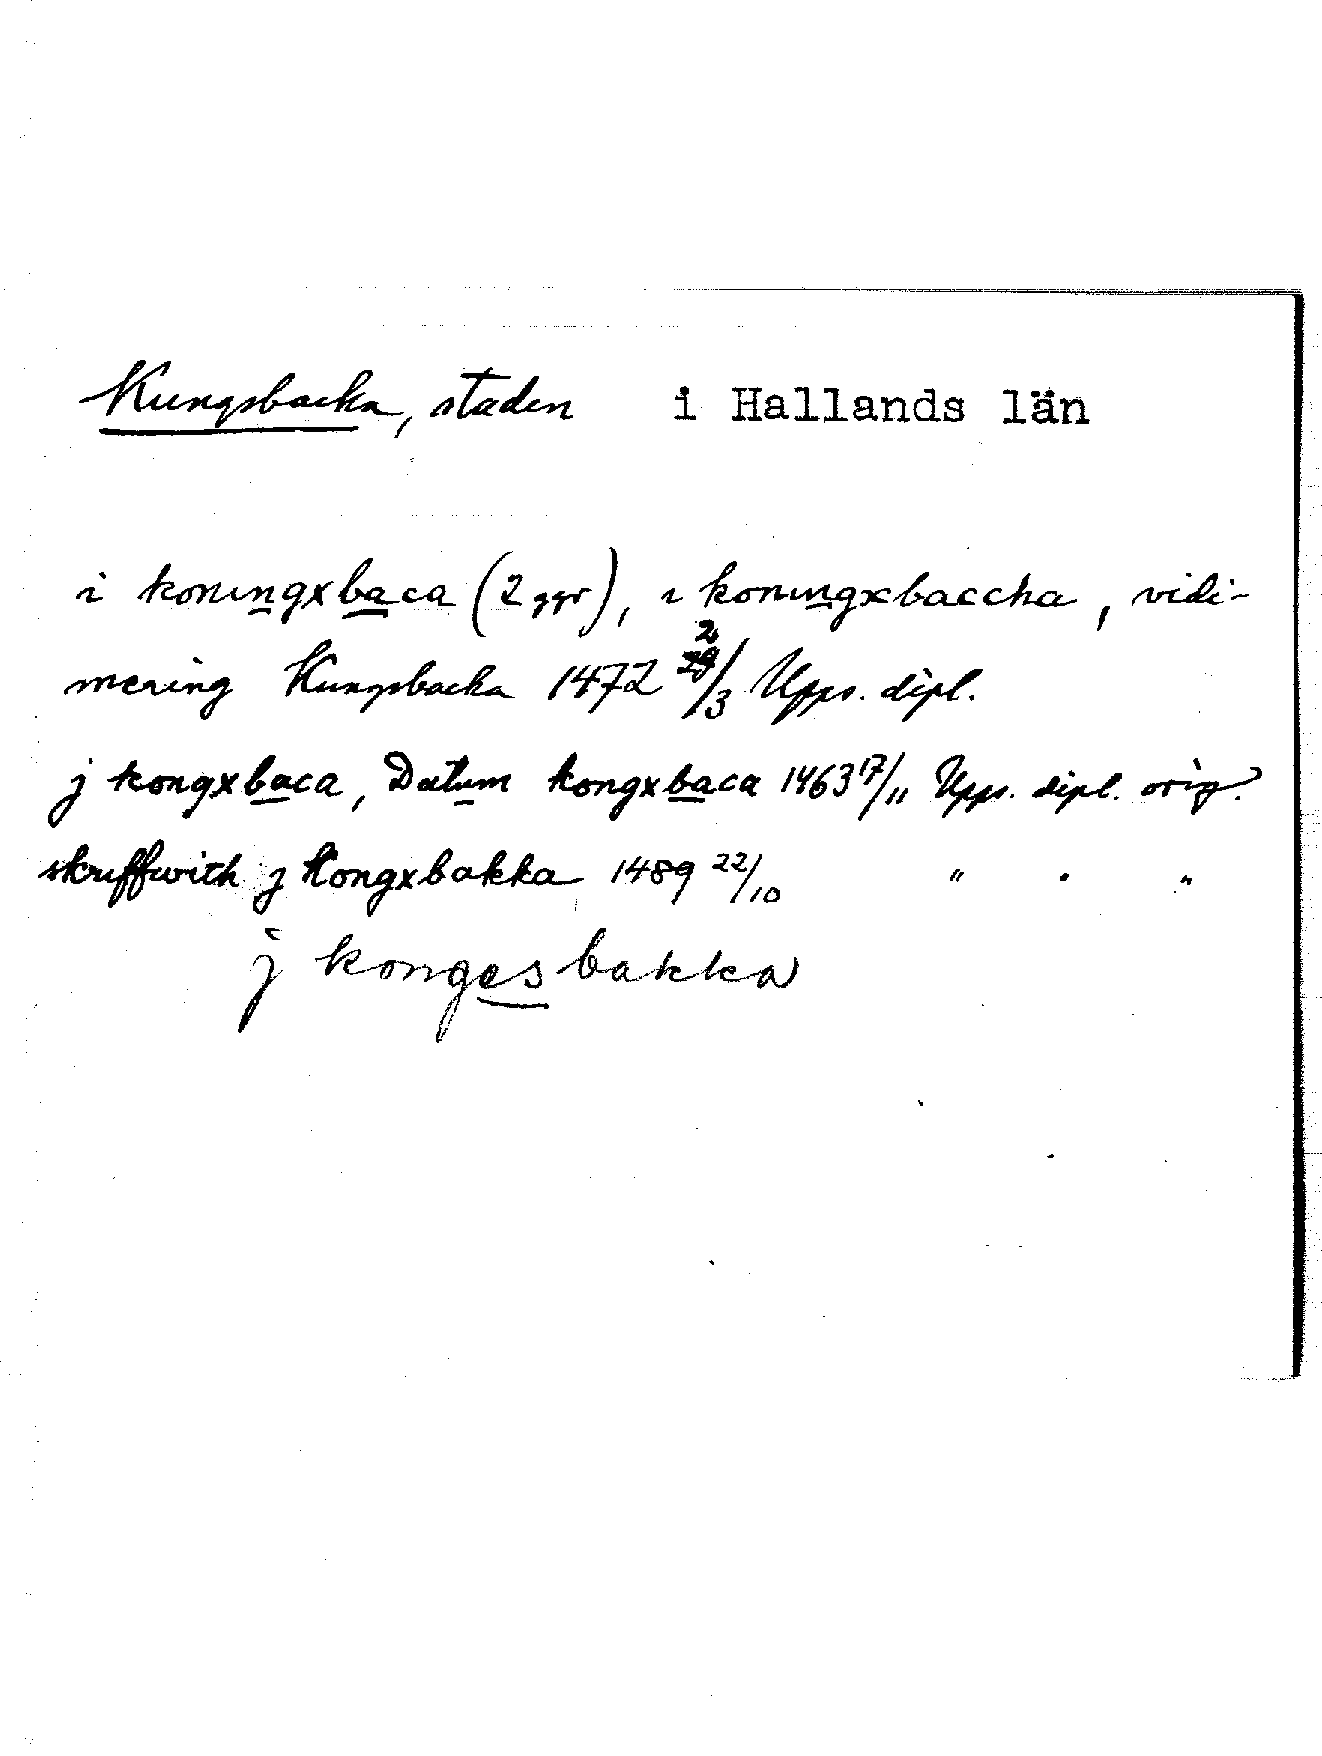 Kungsbacka, staden i Hallands län
i koningxbaca (2 ggr), i koningxbaccha, vidi-
mering Kungsbacka 1472 2/3 Upps. dipl.
j kongxbaca, Datum kongxbaca 1463 17/11 Upps. dipl. orig.
skriffwith j kongxbakka 1489 22/10 " " "
j kongesbakka